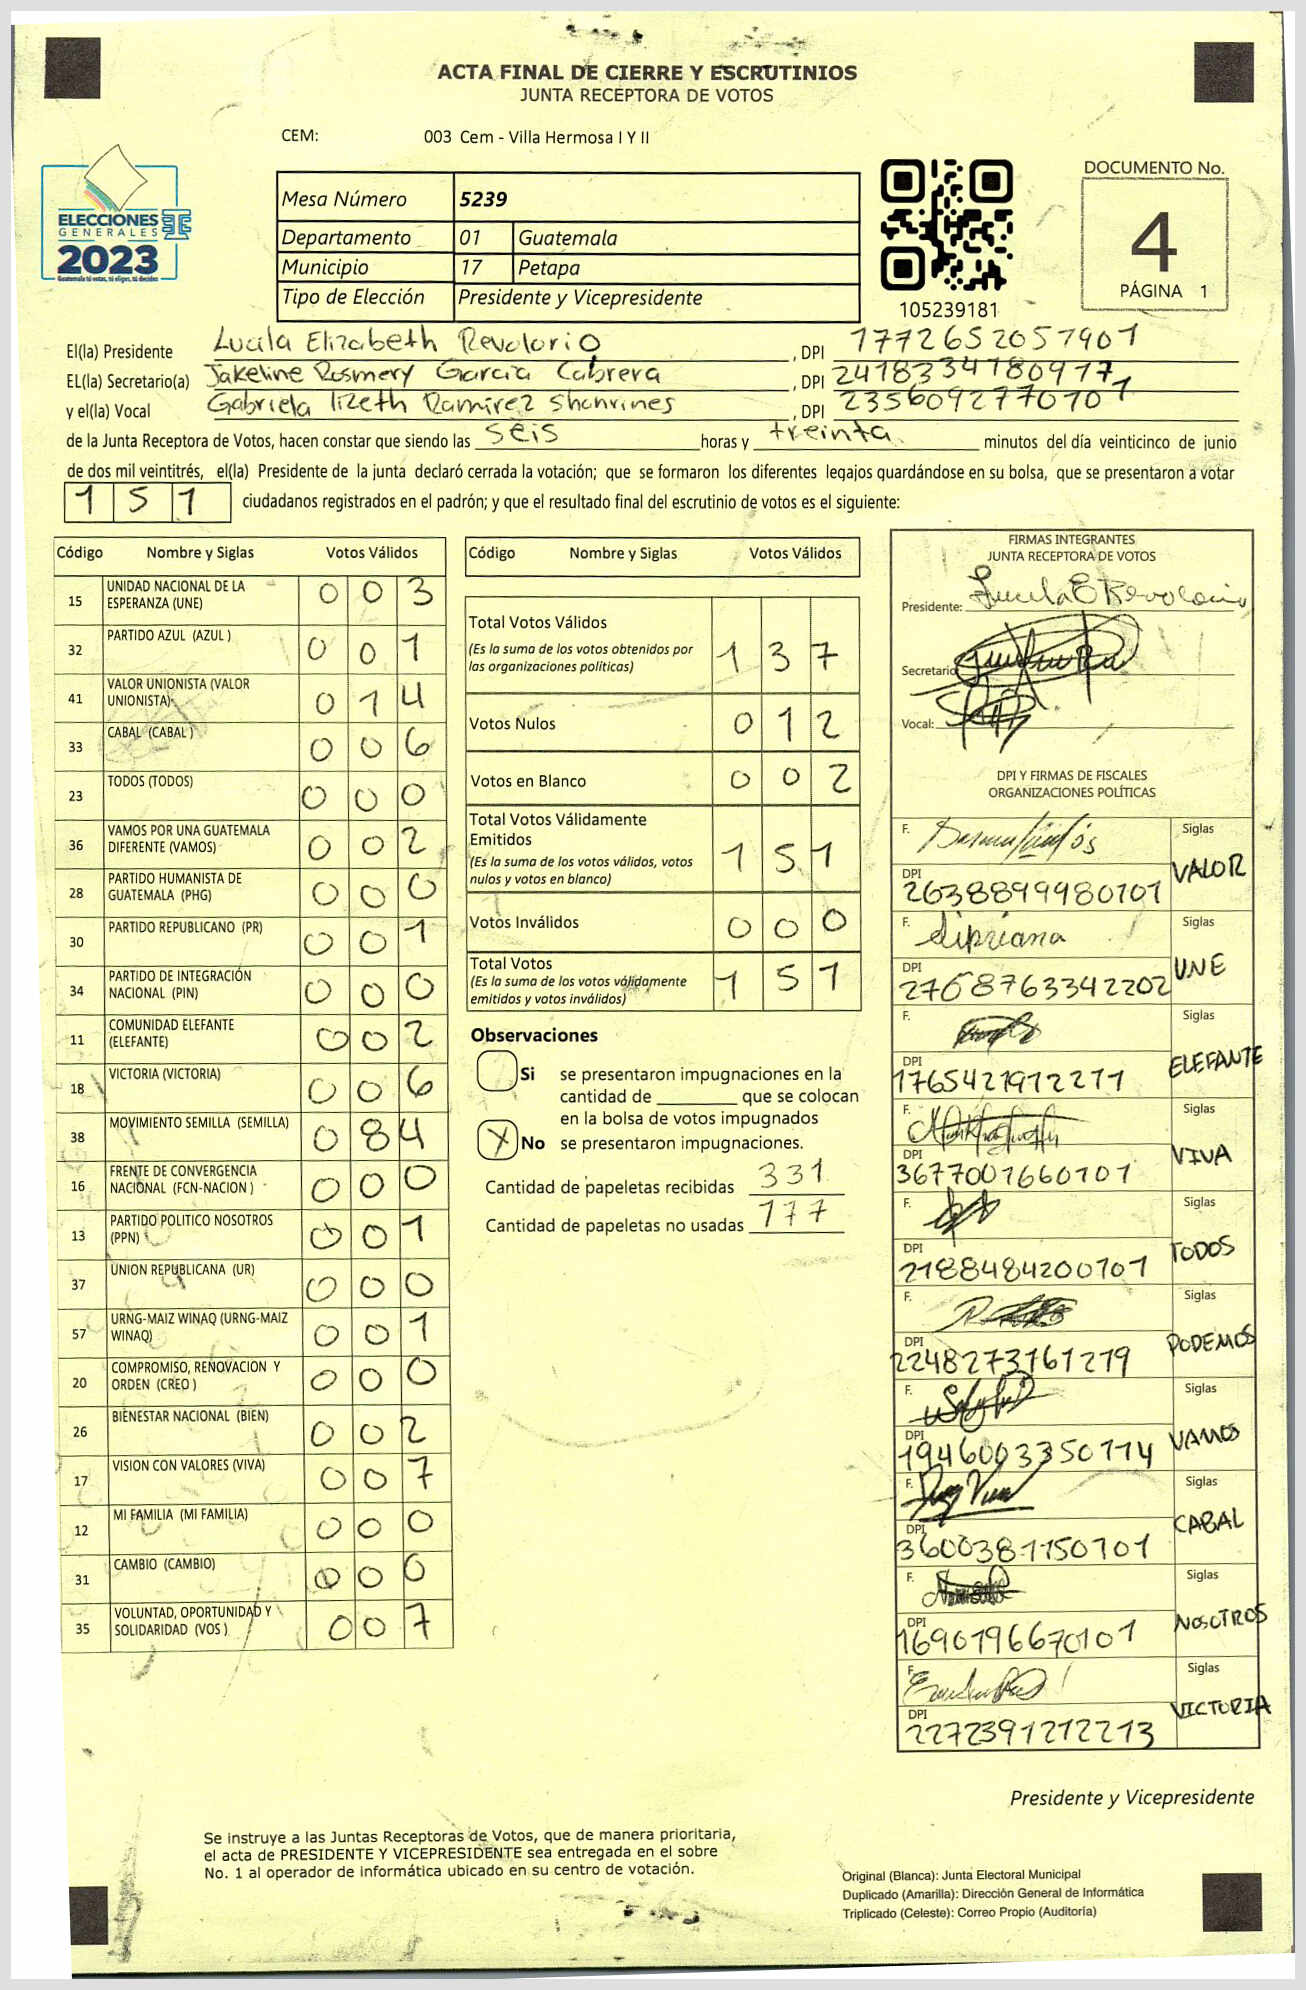 ACTA FINAL DE CIERRE Y ESCRUTINIOS
JUNTA RECEPTORA DE VOTOS
CEM: 003 Cem - Villa Hermosa I Y II
ELECCIONES
GENERALES
2023
Guatemala tú votas, tú eliges, tú decides
Mesa Número 5239
Departamento 01 Guatemala
Municipio 17 Petapa
Tipo de Elección Presidente y Vicepresidente
105239181
DOCUMENTO No.
4
PÁGINA 1
El(la) Presidente Lucila Elizabeth Revolorio, DPI 1772652057901
EL(la) Secretario(a) Jakeline Rosmery Garcia Cabrera, DPI 2418334780917
y el(la) Vocal Gabriela Izeth Ramirez, DPI 2356092770101
de la Junta Receptora de Votos, hacen constar que siendo las seis horas y treinta minutos del día veinticinco de junio
de dos mil veintitrés, el(la) Presidente de la junta declaró cerrada la votación; que se formaron los diferentes legajos quardándose en su bolsa, que se presentaron a votar
151 ciudadanos registrados en el padrón; y que el resultado final del escrutinio de votos es el siguiente:
Código Nombre y Siglas Votos Válidos
15 UNIDAD NACIONAL DE LA ESPERANZA (UNE) 0 0 3
32 PARTIDO AZUL (AZUL ) 0 0 1
41 VALOR UNIONISTA (VALOR UNIONISTA) 0 1 4
33 CABAL (CABAL ) 0 0 6
23 TODOS (TODOS) 0 0 0
36 VAMOS POR UNA GUATEMALA DIFERENTE (VAMOS) 0 0 2
28 PARTIDO HUMANISTA DE GUATEMALA (PHG) 0 0 0
30 PARTIDO REPUBLICANO (PR) 0 0 1
34 PARTIDO DE INTEGRACIÓN NACIONAL (PIN) 0 0 0
11 COMUNIDAD ELEFANTE (ELEFANTE) 0 0 2
18 VICTORIA (VICTORIA) 0 0 6
38 MOVIMIENTO SEMILLA (SEMILLA) 0 8 4
16 FRENTE DE CONVERGENCIA NACIONAL (FCN-NACION ) 0 0 0
13 PARTIDO POLITICO NOSOTROS (PPN) 0 0 1
37 UNION REPUBLICANA (UR) 0 0 0
57 URNG-MAIZ WINAQ (URNG-MAIZ WINAQ) 0 0 1
20 COMPROMISO, RENOVACION Y ORDEN (CREO ) 0 0 0
26 BIENESTAR NACIONAL (BIEN) 0 0 2
17 VISION CON VALORES (VIVA) 0 0 7
12 MI FAMILIA (MI FAMILIA) 0 0 0
31 CAMBIO (CAMBIO) 0 0 0
35 VOLUNTAD, OPORTUNIDAD Y SOLIDARIDAD (VOS ) 0 0 7
Código Nombre y Siglas Votos Válidos
Total Votos Válidos 1 3 7
(Es la suma de los votos obtenidos por
las organizaciones políticas)
Votos Nulos 0 1 2
Votos en Blanco 0 0 2
Total Votos Válidamente
Emitidos 1 5 1
(Es la suma de los votos válidos, votos
nulos y votos en blanco)
Votos Inválidos 0 0 0
Total Votos 1 5 1
(Es la suma de los votos válidamente
emitidos y votos inválidos)
Observaciones
Si se presentaron impugnaciones en la
cantidad de ________ que se colocan
en la bolsa de votos impugnados
X No se presentaron impugnaciones.
Cantidad de papeletas recibidas 331
Cantidad de papeletas no usadas 177
FIRMAS INTEGRANTES
JUNTA RECEPTORA DE VOTOS
Presidente:
Secretario
Vocal:
DPI Y FIRMAS DE FISCALES
ORGANIZACIONES POLÍTICAS
F. Siglas VALOR
DPI 2638899980101
F. Sipriana Siglas UNE
DPI 2768763342202
F. Siglas ELEFANTE
DPI 1765421912211
F. Siglas VIVA
DPI 3677001660101
F. Siglas TODOS
DPI 2188484200101
F. Siglas PODEMOS
DPI 2248273161219
F. Siglas VAMOS
DPI 1946003350114
F. Siglas CABAL
DPI 3600381150101
F. Siglas NOSOTROS
DPI 1690196670101
F. Siglas VICTORIA
DPI 2272391212213
Presidente y Vicepresidente
Se instruye a las Juntas Receptoras de Votos, que de manera prioritaria,
el acta de PRESIDENTE Y VICEPRESIDENTE sea entregada en el sobre
No. 1 al operador de informática ubicado en su centro de votación.
Original (Blanca): Junta Electoral Municipal
Duplicado (Amarilla): Dirección General de Informática
Triplicado (Celeste): Correo Propio (Auditoría)